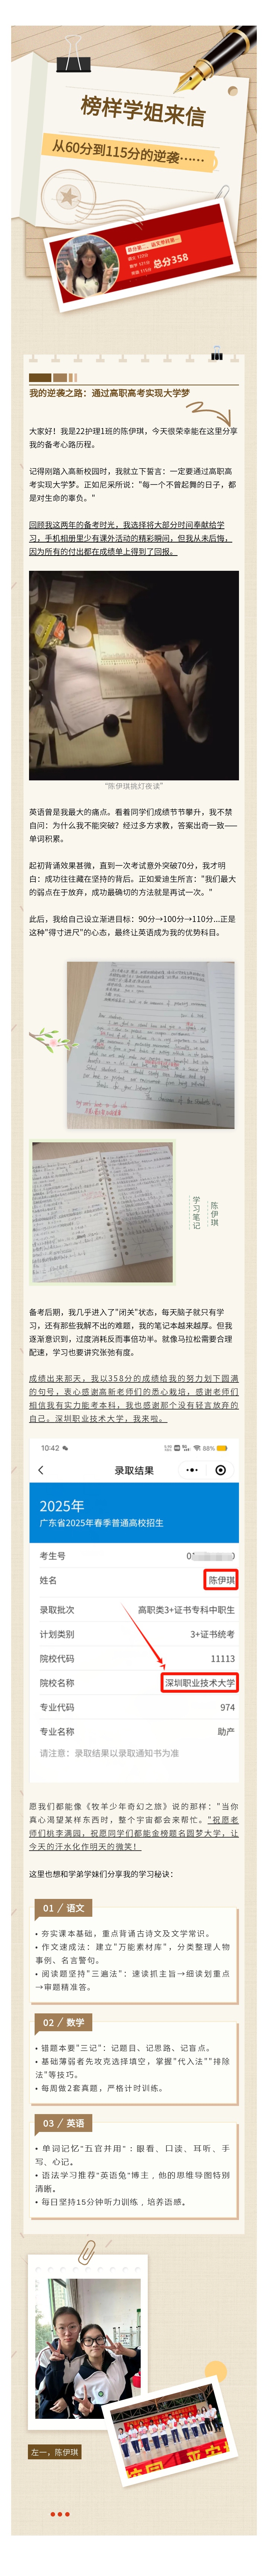 榜样学姐来信
从60分到115分的逆袭……
总分358
我的逆袭之路：通过高职高考实现大学梦
大家好！我是22护理1班的陈伊琪，今天很荣幸能在这里分享
我的备考心路历程。
记得刚踏入高新校园时，我就立下誓言：一定要通过高职高
考实现大学梦。正如尼采所说："每一个不曾起舞的日子，都
是对生命的辜负。"
回顾我这两年的备考时光，我选择将大部分时间奉献给学
习，手机相册里少有课外活动的精彩瞬间，但我从未后悔，
因为所有的付出都在成绩单上得到了回报。
“陈伊琪挑灯夜读”
英语曾是我最大的痛点。看着同学们成绩节节攀升，我不禁
自问：为什么我不能突破？经过多方求教，答案出奇一致——
单词积累。
起初背诵效果甚微，直到一次考试意外突破70分，我才明
白：成功往往藏在坚持的背后。正如爱迪生所言："我们最大
的弱点在于放弃，成功最确切的方法就是再试一次。"
此后，我给自己设立渐进目标：90分→100分→110分...正是
这种"得寸进尺"的心态，最终让英语成为我的优势科目。
陈伊琪
学习笔记
备考后期，我几乎进入了"闭关"状态，每天脑子就只有学
习，还有那些我解不出的难题，我的笔记本越来越厚。但我
逐渐意识到，过度消耗反而事倍功半。就像马拉松需要合理
配速，学习也要讲究张弛有度。
成绩出来那天，我以358分的成绩给我的努力划下圆满
的句号，衷心感谢高新老师们的悉心栽培，感谢老师们
相信我有实力能考本科，我也感谢那个没有轻言放弃的
自己。深圳职业技术大学，我来啦。
10:42
88%
录取结果
2025年
广东省2025年春季普通高校招生
考生号
姓名 陈伊琪
录取批次 高职类3+证书专科中职生
计划类别 3+证书统考
院校代码 11113
院校名称 深圳职业技术大学
专业代码 974
专业名称 助产
请注意：录取结果以录取通知书为准
愿我们都能像《牧羊少年奇幻之旅》说的那样："当你
真心渴望某样东西时，整个宇宙都会来帮忙。"祝愿老
师们桃李满园，祝愿同学们都能金榜题名圆梦大学，让
今天的汗水化作明天的微笑！
这里也想和学弟学妹们分享我的学习秘诀：
01 / 语文
• 夯实课本基础，重点背诵古诗文及文学常识。
• 作文速成法：建立"万能素材库"，分类整理人物
事例、名言警句。
• 阅读题坚持"三遍法"：速读抓主旨→细读划重点
→审题精准答。
02 / 数学
• 错题本要"三记"：记题目、记思路、记盲点。
• 基础薄弱者先攻克选择填空，掌握"代入法""排除
法"等技巧。
• 每周做2套真题，严格计时训练。
03 / 英语
• 单词记忆"五官并用"：眼看、口读、耳听、手
写、心记。
• 语法学习推荐"英语兔"博主，他的思维导图特别
清晰。
• 每日坚持15分钟听力训练，培养语感。
左一，陈伊琪